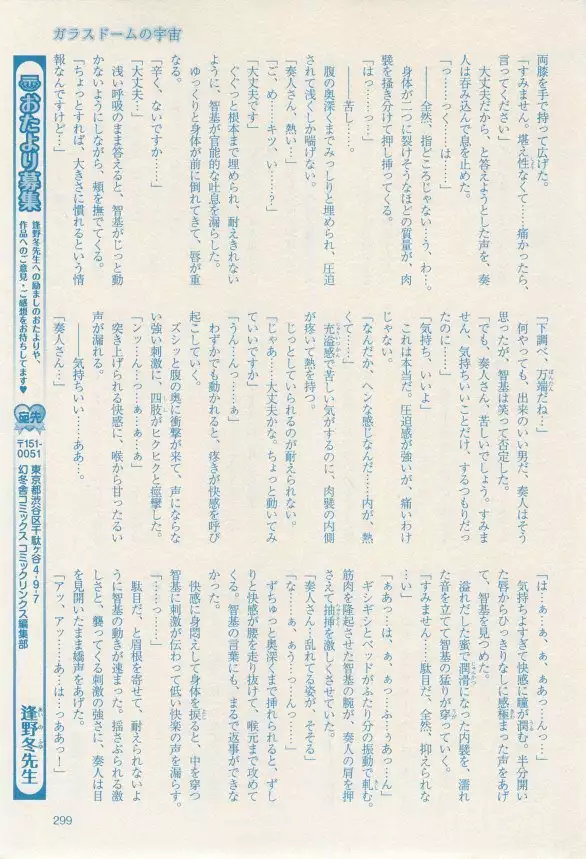 ガラスドームの宇宙
両膝を手で持って広げた。
「すみません。堪え性なくて……痛かったら、
言ってください」
大丈夫だから、と答えようとした声を、奏
人は呑み込んで息を止めた。
「っ……っく……は……」
――全然、指どころじゃない…う、わ…。
身体が二つに裂けそうなほどの質量が、肉
襞を掻き分けて押し挿ってくる。
「はっ……っ…」
――苦し……。
腹の奥深くまでみっしりと埋められ、圧迫
されて浅くしか喘げない。
「奏人さん、熱い…」
「ご、め……キツ、い……?」
「大丈夫です」
ぐぐっと根本まで埋められ、耐えきれない
ように、智基が官能的な吐息を漏らした。
ゆっくりと身体が前に倒れてきて、唇が重
なる。
「辛く、ないですか……」
「大丈夫…」
浅い呼吸のまま答えると、智基がじっと動
かないようにしながら、頬を撫でてくる。
「ちょっとすれば、大きさに慣れるという情
報なんですけど…」
「下調べ、万端だね…」
何やっても、出来のいい男だ、奏人はそう
思ったが、智基は笑って否定した。
「でも、奏人さん、苦しいでしょう。すみま
せん、気持ちいいことだけ、するつもりだっ
たのに……」
「気持ち、いいよ」
これは本当だ。圧迫感が強いが、痛いわけ
じゃない。
「なんだか、ヘンな感じなんだ……内が、熱
くて……」
充溢感で苦しい気がするのに、肉襞の内側
が疼いて熱を持つ。
じっとしていられるのが耐えられない。
「じゃあ……大丈夫かな。ちょっと動いてみ
ていいですか」
「うん……んっ……ぁ」
わずかでも動かれると、疼きが快感を呼び
起こしていく。
ズシッと腹の奥に衝撃が来て、声にならな
い強い刺激に、四肢がヒクヒクと痙攣した。
「ンッ…ん…っ…ぁ…ぁ…ぁ」
突き上げられる快感に、喉から甘ったるい
声が漏れる。
――気持ちいい……ああ…。
「奏人さん…」
「は…ぁ…ぁ、ぁ、ぁあっ…んっ…」
気持ちよすぎて快感に瞳が潤む。半分開い
た唇からひっきりなしに感極まった声をあげ
て、智基を見つめた。
溢れだした蜜で潤滑になった内襞を、濡れ
た音を立てて智基の猛りが穿っていく。
「すみません……駄目だ、全然、抑えられな
…い」
「ぁあっ…は、ぁ…っ…ふ…うあっ…ん」
ギシギシとベッドがふたり分の振動で軋む。
筋肉を隆起させた智基の腕が、奏人の肩を押
さえて抽挿を激しくさせていた。
「奏人さん…乱れてる姿が、そそる」
「な……ぁ、ぁう…っ…んっ……」
ずちゅっと奥深くまで挿れられると、ずし
りと快感が腰を走り抜けて、喉元まで攻めて
くる。智基の言葉にも、まるで返事ができな
かった。
快感に身悶えして身体を捩ると、中を穿つ
智基に刺激が伝わって低い快楽の声を漏らす。
「……っ…」
駄目だ、と眉根を寄せて、耐えられないよ
うに智基の動きが速まった。揺さぶられる激
しさと、襲ってくる刺激の強さに、奏人は目
を見開いたまま嬌声をあげた。
「アッ、アッ……あ…は…っああっ！」
おたより募集
逢野冬先生への励ましのおたよりや、
作品へのご意見・ご感想をお待ちしてます♥
宛先
〒151-
0051
東京都渋谷区千駄ヶ谷4-9-7
幻冬舎コミックス コミックリンクス編集部
逢野冬先生
299